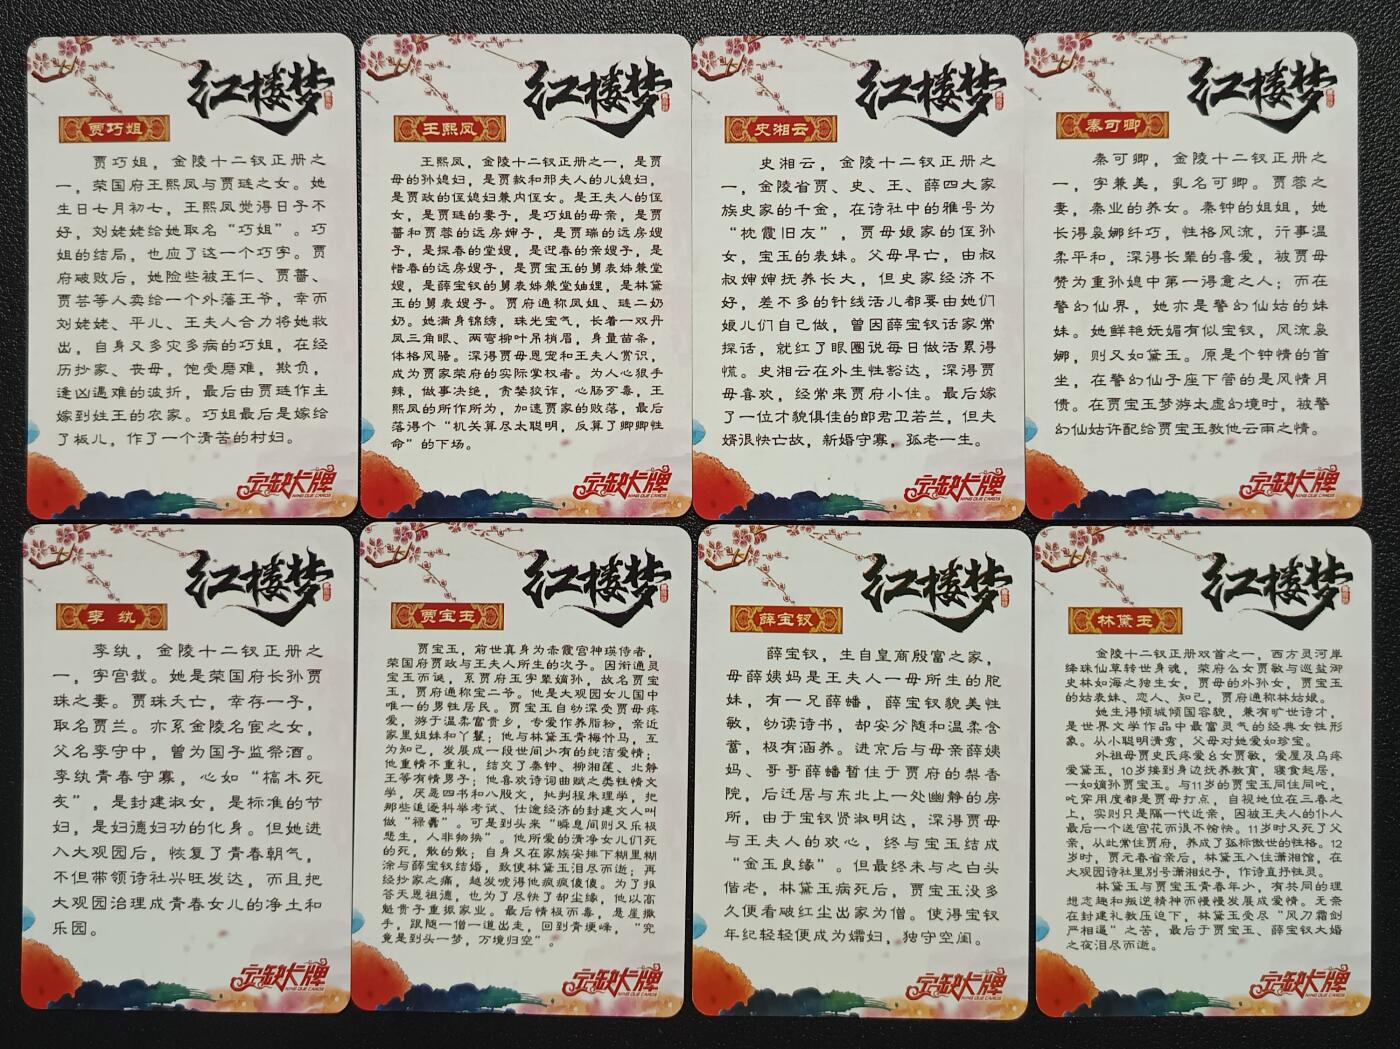 红楼梦
贾巧姐
贾巧姐，金陵十二钗正册之
一，荣国府王熙凤与贾琏之女。她
生日七月初七，王熙凤觉得日子不
好，刘姥姥给她取名“巧姐”。巧
姐的结局，也应了这一个巧字。贾
府破败后，她险些被王仁、贾蔷、
贾芸等人卖给一个外藩王爷，幸而
刘姥姥、平儿、王夫人合力将她救
出，自身又多灾多病的巧姐，在经
历抄家、丧母，饱受磨难，欺负，
逢凶遇难的波折，最后由贾琏作主
嫁到姓王的农家。巧姐最后是嫁给
了板儿，作了一个清苦的村妇。
宁缺大牌
NING QUE CARDS
红楼梦
王熙凤
王熙凤，金陵十二钗正册之一，是贾
母的孙媳妇，是贾赦和邢夫人的儿媳妇，
是贾政的侄媳妇兼内侄女。是王夫人的侄
女，是贾琏的妻子，是巧姐的母亲，是贾
蔷和贾蓉的远房婶子，是贾瑞的远房嫂
子，是探春的堂嫂，是迎春的亲嫂子，是
惜春的远房嫂子，是贾宝玉的舅表姊兼堂
嫂，是薛宝钗的舅表姊兼堂妯娌，是林黛
玉的舅表嫂子。贾府通称凤姐、琏二奶
奶。她满身锦绣，珠光宝气，长着一双丹
凤三角眼、两弯柳叶吊梢眉，身量苗条，
体格风骚。深得贾母恩宠和王夫人赏识，
成为贾家荣府的实际掌权者。为人心狠手
辣，做事决绝，贪婪狡诈，心肠歹毒，王
熙凤的所作所为，加速贾家的败落，最后
落得个“机关算尽太聪明，反算了卿卿性
命”的下场。
宁缺大牌
NING QUE CARDS
红楼梦
史湘云
史湘云，金陵十二钗正册之
一，金陵省贾、史、王、薛四大家
族史家的千金，在诗社中的雅号为
“枕霞旧友”，贾母娘家的侄孙
女，宝玉的表妹。父母早亡，由叔
叔婶婶抚养长大，但史家经济不
好，差不多的针线活儿都要由她们
娘儿们自己做，曾因薛宝钗话家常
探话，就红了眼圈说每日做活累得
慌。史湘云在外生性豁达，深得贾
母喜欢，经常来贾府小住。最后嫁
了一位才貌俱佳的郎君卫若兰，但夫
婿很快亡故，新婚守寡，孤老一生。
宁缺大牌
NING QUE CARDS
红楼梦
秦可卿
秦可卿，金陵十二钗正册之
一，字兼美，乳名可卿。贾蓉之
妻，秦业的养女。秦钟的姐姐，她
长得袅娜纤巧，性格风流，行事温
柔平和，深得长辈的喜爱，被贾母
赞为重孙媳中第一得意之人；而在
警幻仙界，她亦是警幻仙姑的妹
妹。她鲜艳妩媚有似宝钗，风流袅
娜，则又如黛玉。原是个钟情的首
坐，在警幻仙子座下管的是风情月
债。在贾宝玉梦游太虚幻境时，被警
幻仙姑许配给贾宝玉教他云雨之情。
宁缺大牌
NING QUE CARDS
红楼梦
李 纨
李纨，金陵十二钗正册之
一，字宫裁。她是荣国府长孙贾
珠之妻。贾珠夭亡，幸存一子，
取名贾兰。亦系金陵名宦之女，
父名李守中，曾为国子监祭酒。
李纨青春守寡，心如“槁木死
灰”，是封建淑女，是标准的节
妇，是妇德妇功的化身。但她进
入大观园后，恢复了青春朝气，
不但带领诗社兴旺发达，而且把
大观园治理成青春女儿的净土和
乐园。
宁缺大牌
NING QUE CARDS
红楼梦
贾宝玉
贾宝玉，前世真身为赤霞宫神瑛侍者，
荣国府贾政与王夫人所生的次子。因衔通灵
宝玉而诞，系贾府玉字辈嫡孙，故名贾宝
玉，贾府通称宝二爷。他是大观园女儿国中
唯一的男性居民。贾宝玉自幼深受贾母疼
爱，游于温柔富贵乡，专爱作养脂粉，亲近
家里姐妹和丫鬟；他与林黛玉青梅竹马，互
为知己，发展成一段世间少有的纯洁爱情；
他重情不重礼，结交了秦钟、柳湘莲、北静
王等有情男子；他喜欢诗词曲赋之类性情文
学，厌恶四书和八股文，批判程朱理学，把
那些追逐科举考试、仕途经济的封建文人叫
做“禄蠹”。可是到头来“瞬息间则又乐极
悲生，人非物换”。他所爱的清净女儿们死
的死，散的散；自身又在家族安排下糊里糊
涂与薛宝钗结婚，致使林黛玉泪尽而逝；再
经抄家之痛，越发唬得他疯疯傻傻。为了报
答天恩祖德，也为了尽快了却尘缘，他以高
魁贵子重振家业。最后情极而毒，是崖撒
手，跟随一僧一道出走，回到青埂峰，“究
竟是到头一梦，万境归空”。
宁缺大牌
NING QUE CARDS
红楼梦
薛宝钗
薛宝钗，生自皇商殷富之家，
母薛姨妈是王夫人一母所生的胞
妹，有一兄薛蟠，薛宝钗貌美性
敏，幼读诗书，却安分随和温柔含
蓄，极有涵养。进京后与母亲薛姨
妈、哥哥薛蟠暂住于贾府的梨香
院，后迁居与东北上一处幽静的房
所，由于宝钗贤淑明达，深得贾母
与王夫人的欢心，终与宝玉结成
“金玉良缘”。但最终未与之白头
偕老，林黛玉病死后，贾宝玉没多
久便看破红尘出家为僧。使得宝钗
年纪轻轻便成为孀妇，独守空闺。
宁缺大牌
NING QUE CARDS
红楼梦
林黛玉
金陵十二钗正册双首之一，西方灵河岸
绛珠仙草转世身魂，荣府幺女贾敏与巡盐御
史林如海之独生女，贾母的外孙女，贾宝玉
的姑表妹、恋人、知己，贾府通称林姑娘。
她生得倾城倾国容貌，兼有旷世诗才，
是世界文学作品中最富灵气的经典女性形
象。从小聪明清秀，父母对她爱如珍宝。
外祖母贾史氏疼爱幺女贾敏，爱屋及乌疼
爱黛玉，10岁接到身边抚养教育，寝食起居，
一如嫡孙贾宝玉。与11岁的贾宝玉同住同吃，
吃穿用度都是贾母打点，自视地位在三春之
上，实则只是隔一代近亲，因被王夫人的仆人
最后一个送宫花而很不愉快。11岁时又死了父
亲，从此常住贾府，养成了孤标傲世的性格。12
岁时，贾元春省亲后，林黛玉入住潇湘馆，在
大观园诗社里别号潇湘妃子，作诗直抒性灵。
林黛玉与贾宝玉青春年少，有共同的理
想志趣和叛逆精神而慢慢发展成爱情。无奈
在封建礼教压迫下，林黛玉受尽“风刀霜剑
严相逼”之苦，最后于贾宝玉、薛宝钗大婚
之夜泪尽而逝。
宁缺大牌
NING QUE CARDS